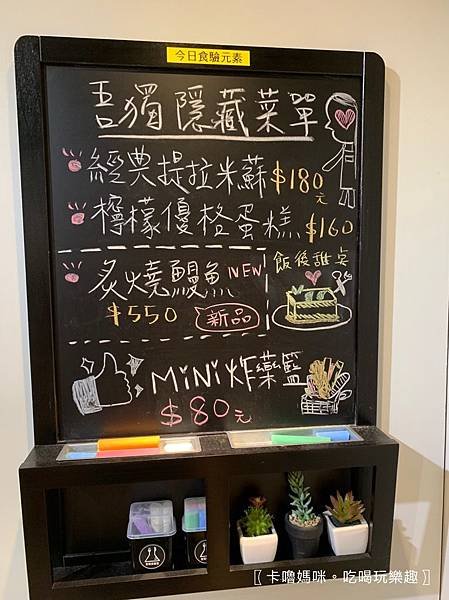 今日食驗元素
吾獨隱藏菜單
經典提拉米蘇 $180元
檸檬優格蛋糕 $160
炙燒鰻魚 NEW
$550 新品
飯後誰宴
MiNi炸藥籃
$80元
〖卡嚕媽咪。吃喝玩樂趣〗